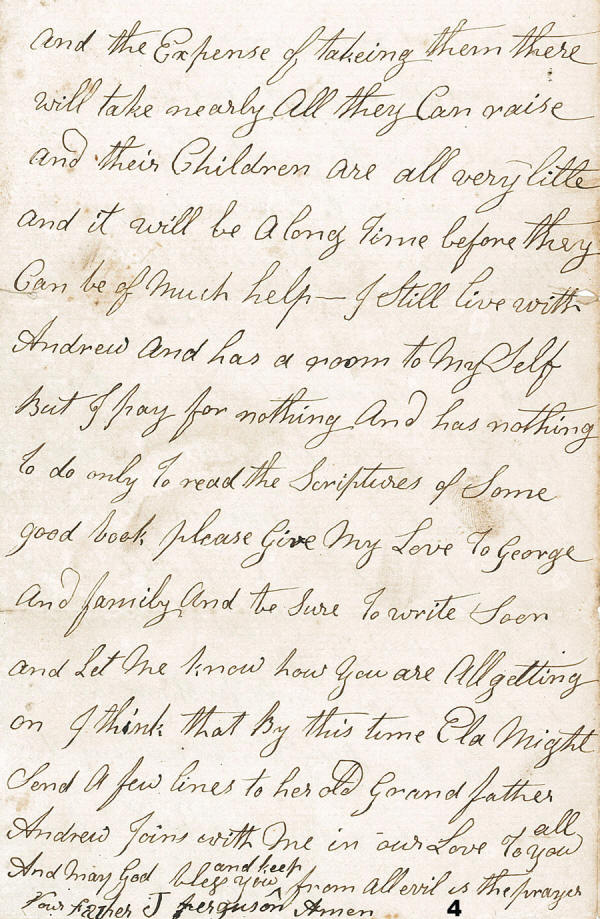 and the Expense of takeing them there
will take nearly All they Can raise
and their Children are all very litle
and it will be A long time before they
Can be of Much help — I Still live with
Andrew And has a room to My Self
But I pay for nothing And has nothing
to do only to read the Scriptures of Some
good book please Give My Love To George
And family And be Sure To write Soon
and Let Me know how You are All getting
on I think that By this time Ela Might
Send A few lines to her old Grand father
Andrew Joins with Me in our Love To you all
And May God bless you and keep from All evil is the prayer
Your Father J ferguson Amen
4